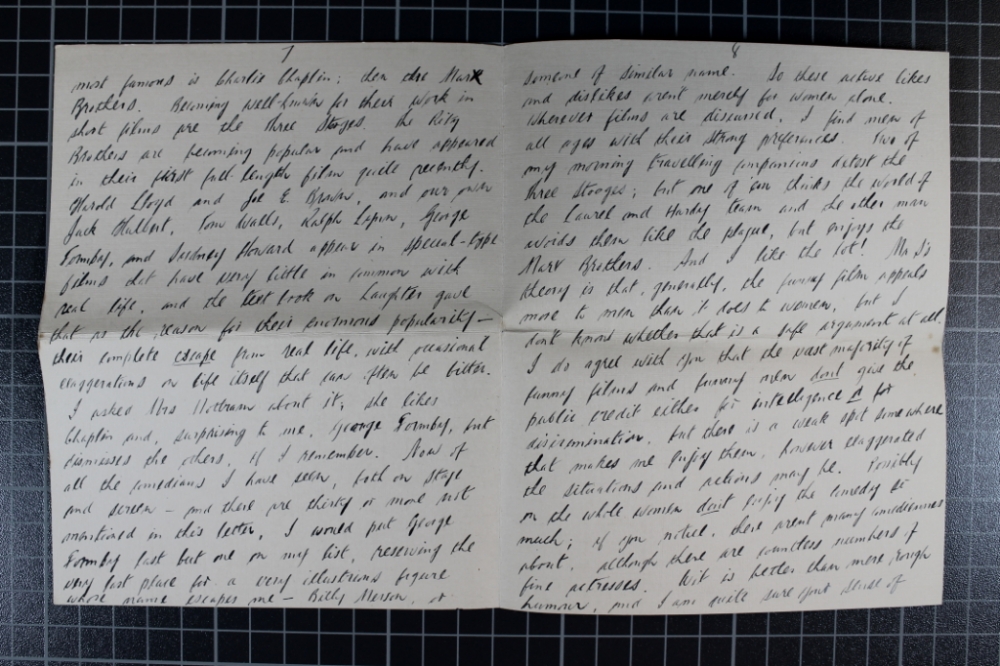 7
most famous is Charlie Chaplin; then the Marx
Brothers. Becoming well-known for their work in
short films are the three Stooges. The Ritz
Brothers are becoming popular and have appeared
in their first full-length film quite recently.
Harold Lloyd and Joe E. Brown, and our own
Jack Hulbert, Tom Walls, Ralph Lynn, George
Formby, and Sydney Howard appear in special-type
films that have very little in common with
real life, and the text book on laughter gave
that as the reason for their enormous popularity —
their complete escape from real life, with occasional
exaggerations on life itself that can often be bitter.
I asked Mrs about it; she likes
Chaplin and, surprising to me, George Formby, but
dismisses the others, if I remember. Now of
all the comedians I have seen, both on stage
and screen – and there are thirty or more not
mentioned in this letter, I would put George
Formby last but one on my list, reserving the
very last place for a very illustrious figure
whose name escapes me – Billy Merson, or
8
someone of similar name. So these active likes
and dislikes aren't merely for women alone.
Wherever films are discussed, I find men of
all ages with their strong preferences. Two of
my morning travelling companions detest the
three Stooges; but one of 'em thinks the world of
the Laurel and Hardy team and the other man
avoids them like the plague, but enjoys the
Marx Brothers. And I like the lot! Mr S's
theory is that, generally, the funny film appeals
more to men than it does to women; but I
don't know whether that is a safe argument at all.
I do agree with you that the vast majority of
funny films and funny men don't give the
public credit either for intelligence or for
discrimination, but there is a weak spot somewhere
that makes me enjoy them, however exaggerated
the situations and actions may be. Possibly
on the whole women don't enjoy the comedy so
much; if you notice, there aren't many comediennes
about, although there are countless numbers of
fine actresses. Wit is better than mere rough
humour, and I am quite sure your sense of